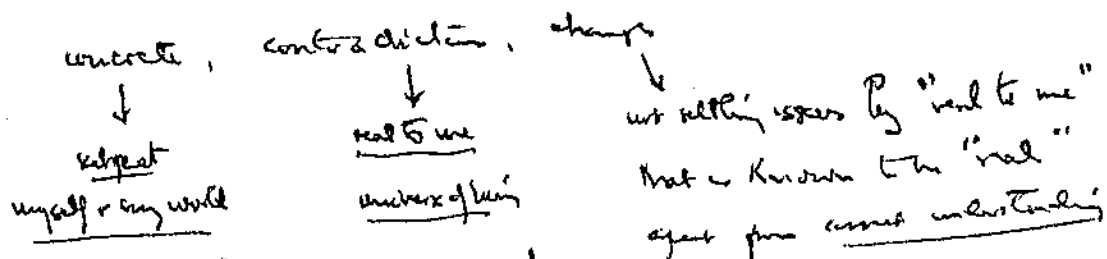 concrete, contradiction, change
subject
real to me
myself & my world
universe of being
not settling issues by "real to me"
that is known to be "real"
apart from correct understanding